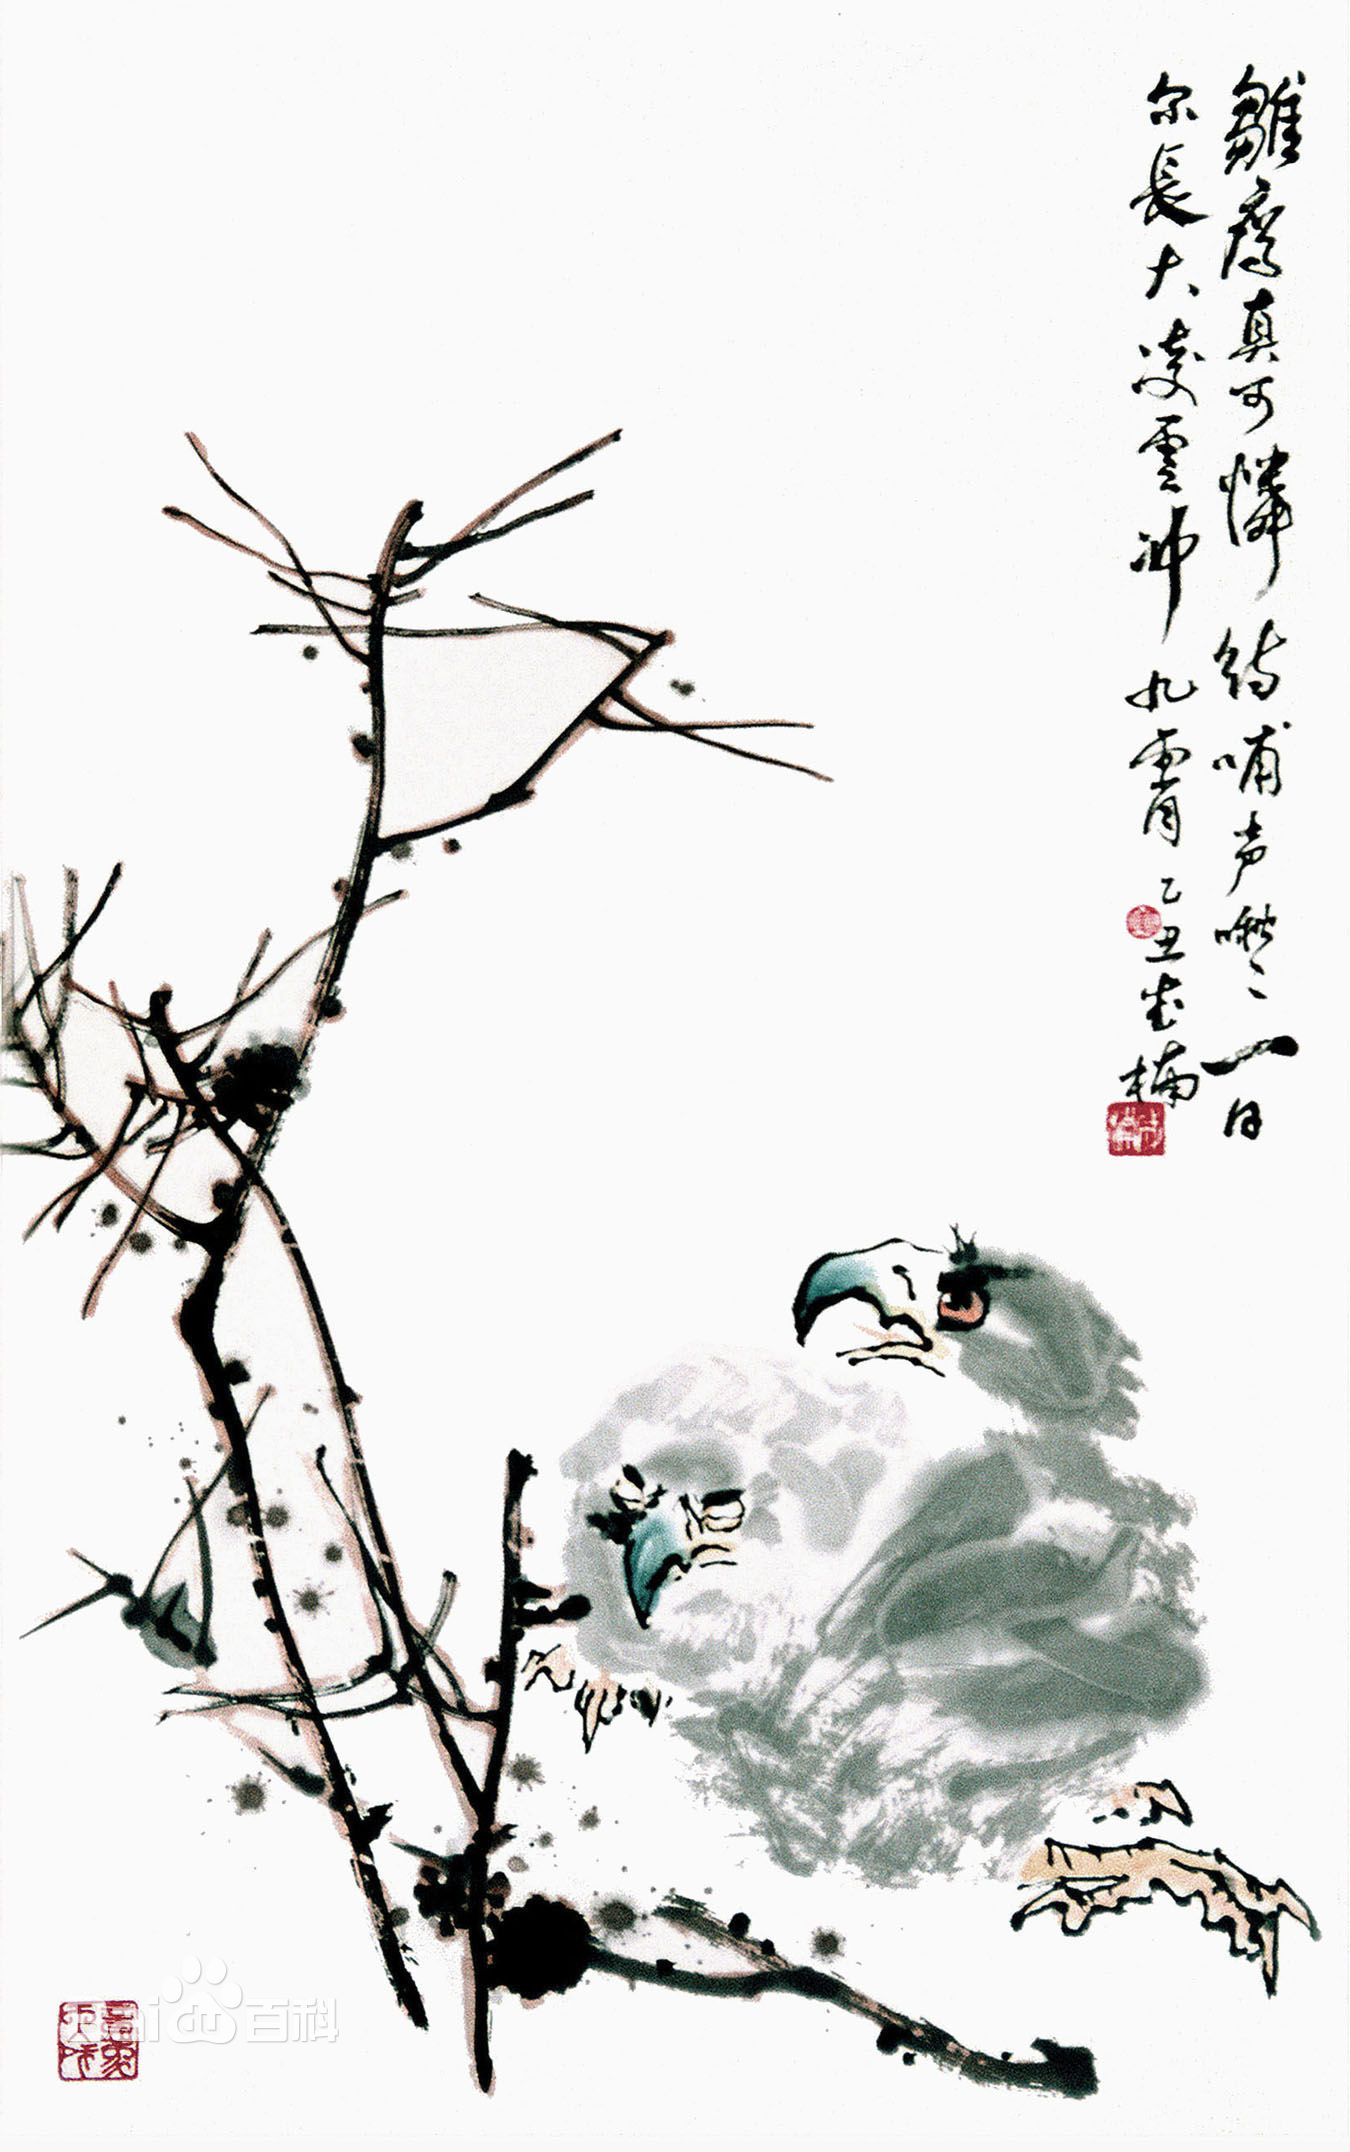 雛鷹真可憐待哺声啾々一日
尔長大凌雲冲九霄乙丑楠
Bai百科